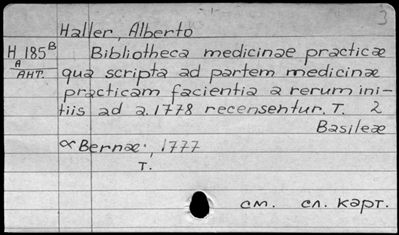 3
Haller, Alberto
H 185ᴮ
A
АНТ.
Bibliotheca medicinæ practicæ
qua scripta ad partem medicinæ
practicam facientia a rerum ini-
tiis ad a. 1778 recensentur. T. 2
Basileæ
∝ Bernæ., 1777
T.
см. сл. карт.